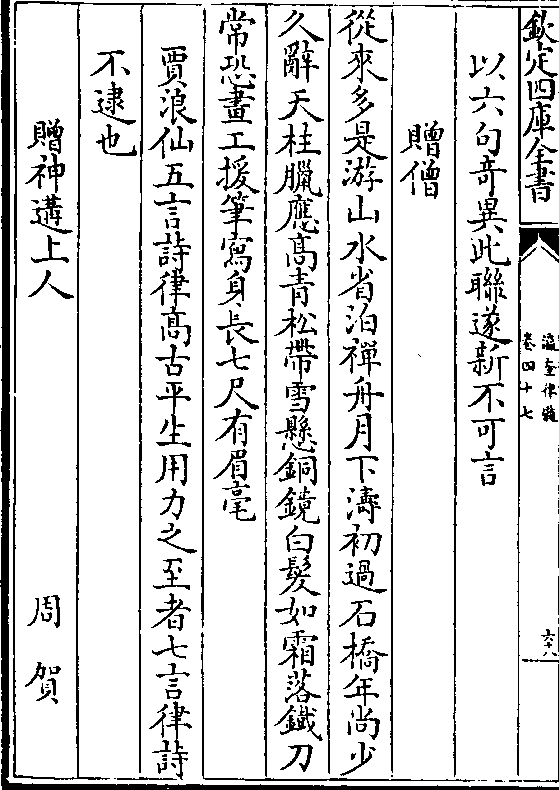 欽定四庫全書
瀛奎律髓
卷四十七
六八
以六句竒異此聯遂新不可言
贈僧
從來多是游山水省泊禪舟月下濤初過石橋年尚少
久辭天柱臘應髙青松帶雪懸銅鏡白髮如霜落鐵刀
常恐畫工援筆寫身長七尺有眉毫
賈浪仙五言詩律髙古平生用力之至者七言律詩
不逮也
贈神遘上人 周賀